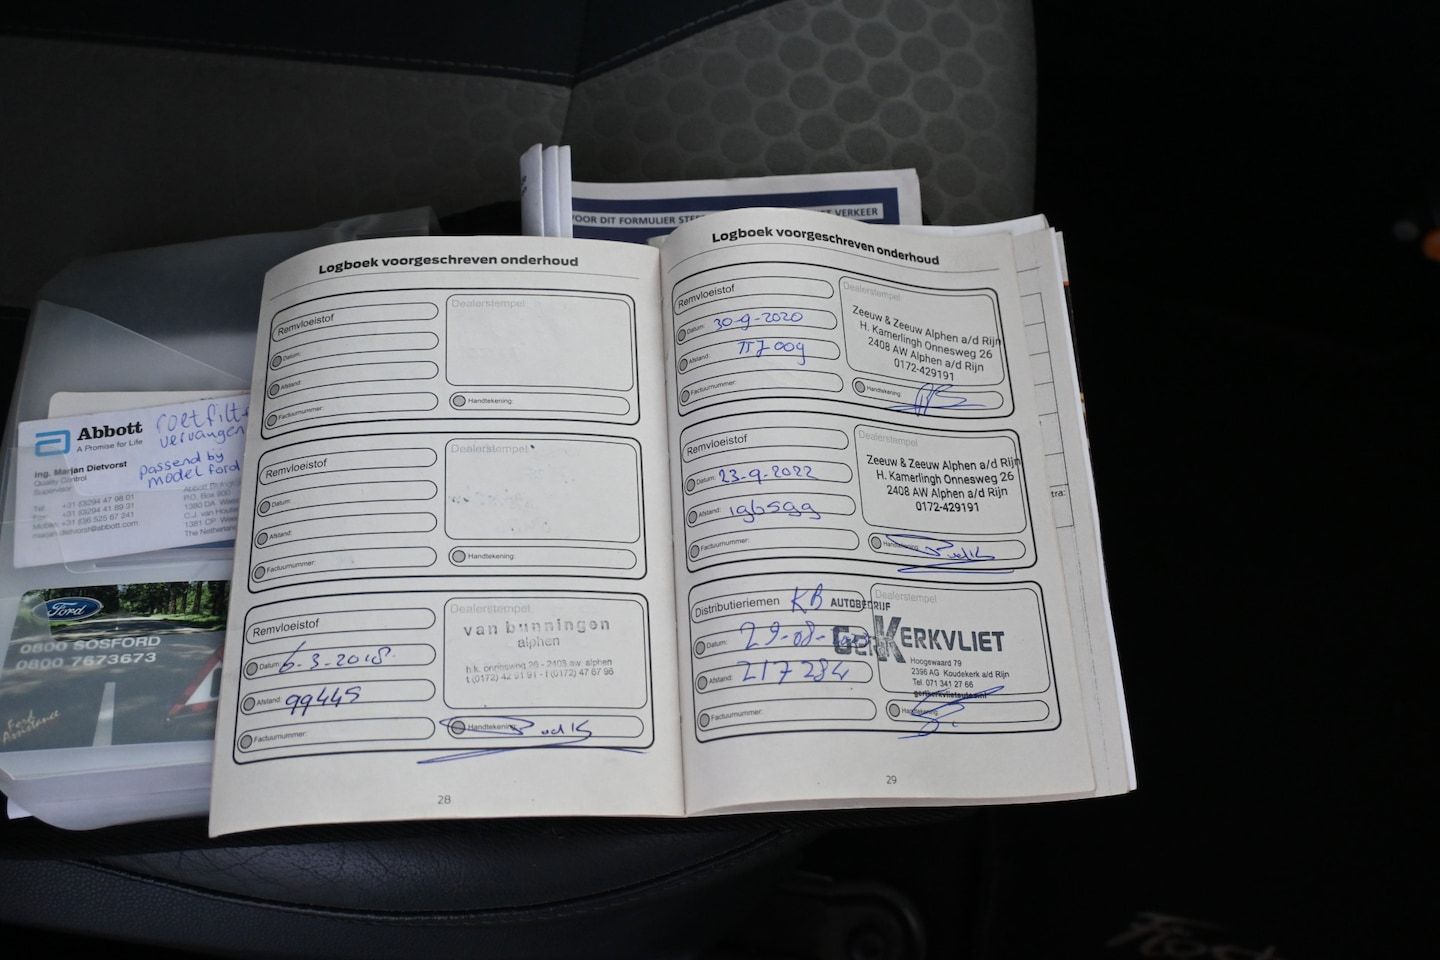 VOOR DIT FORMULIER
VERKEER
Abbott
A Promise for Life
vervangen
passend bij
model ford
Ing. Marjan Dietvorst
Quality Control
Supervisor
Tel. +31 (0)294 47 98 01
Fax +31 (0)294 41 89 31
Mobile +31 (0)6 525 67 241
marjan.dietvorst@abbott.com
P.O. Box 900
The Netherl
Ford
0800 SOSFORD
0800 7673673
Ford
Assistance
Logboek voorgeschreven onderhoud
Remvloeistof
Dealerstempel
Datum:
Afstand:
Factuurnummer:
Handtekening:
Remvloeistof
Dealerstempel
Datum:
Afstand:
Factuurnummer:
Handtekening:
Remvloeistof
Datum: 6-3-2018
Afstand: 99445
Factuurnummer:
Dealerstempel
van bunningen
alphen
h.k. onnesweg 26 - 2408 aw alphen
Handtekening:
28
Logboek voorgeschreven onderhoud
Remvloeistof
Datum: 30-9-2020
Afstand:
Factuurnummer:
Dealerstempel
Zeeuw & Zeeuw Alphen a/d Rijn
H. Kamerlingh Onnesweg 26
2408 AW Alphen a/d Rijn
0172-429191
Handtekening:
Remvloeistof
Datum: 23-9-2022
Afstand: 196599
Factuurnummer:
Dealerstempel
Zeeuw & Zeeuw Alphen a/d Rijn
H. Kamerlingh Onnesweg 26
2408 AW Alphen a/d Rijn
0172-429191
Handtekening:
Distributieriemen KB
Datum: 29-08-
Afstand: 217284
Factuurnummer:
Dealerstempel
AUTOBEDRIJF
GER KERKVLIET
Hoogewaard 79
2396 AG Koudekerk a/d Rijn
Tel. 071 341 27 66
Handtekening:
29
tra: